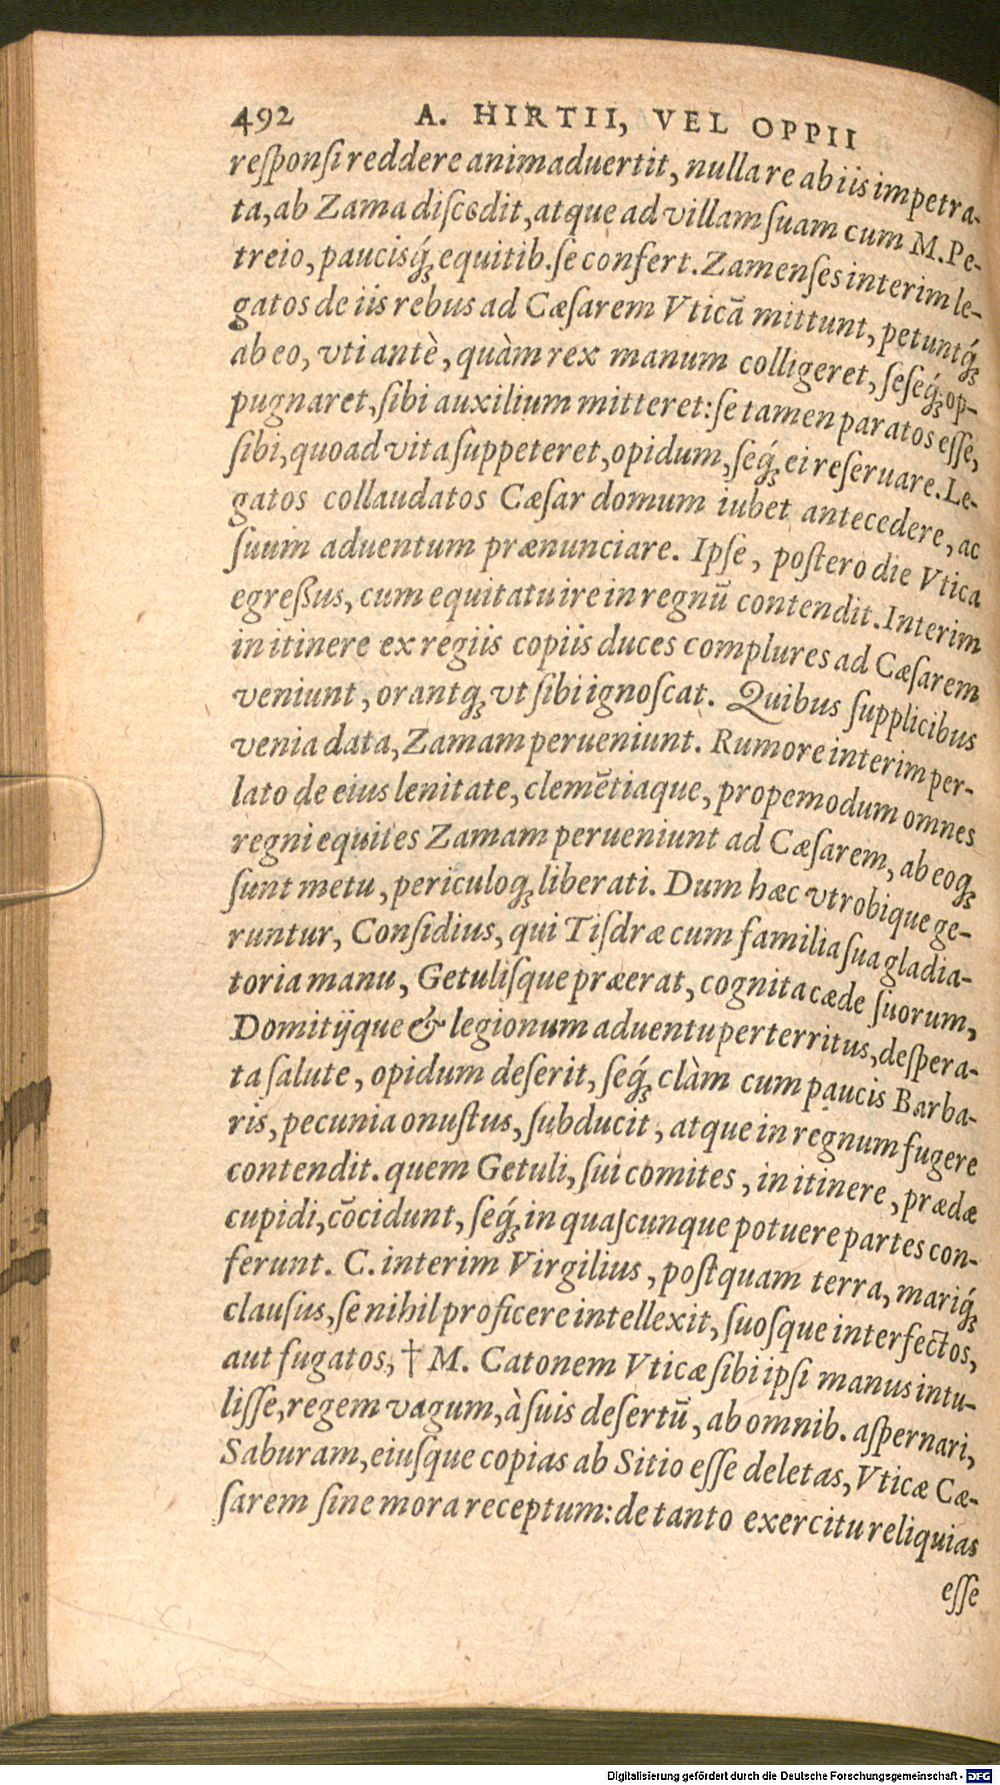 492 A. HIRTII, VEL OPPII
reſponſi reddere animaduertit, nulla re ab iis impetra-
ta, ab Zama diſcedit, atque ad villam ſuam cum M. Pe-
treio, paucisq́; equitib. ſe confert. Zamenſes interim le-
gatos de iis rebus ad Cæſarem Vticā mittunt, petuntq́;
ab eo, vti antè, quàm rex manum colligeret, ſeſeq́; op-
pugnaret, ſibi auxilium mitteret: ſe tamen paratos eſſe,
ſibi, quoad vita ſuppeteret, opidum, ſeq́; ei reſeruare. Le-
gatos collaudatos Cæſar domum iubet antecedere, ac
ſuum aduentum prænunciare. Ipſe, poſtero die Vtica
egreßus, cum equitatu ire in regnū contendit. Interim
in itinere ex regiis copiis duces complures ad Cæſarem
veniunt, orantq; vt ſibi ignoſcat. Quibus ſupplicibus
venia data, Zamam perueniunt. Rumore interim per-
lato de eius lenitate, clemētiaque, propemodum omnes
regni equites Zamam perueniunt ad Cæſarem, ab eoq;
ſunt metu, periculoq; liberati. Dum hæc vtrobique ge-
runtur, Conſidius, qui Tiſdræ cum familia ſua gladia-
toria manu, Getuliſque præerat, cognita cæde ſuorum,
Domitijque & legionum aduentu perterritus, deſpera-
ta ſalute, opidum deſerit, ſeq́; clàm cum paucis Barba-
ris, pecunia onuſtus, ſubducit, atque in regnum fugere
contendit. quem Getuli, ſui comites, in itinere, prædæ
cupidi, cōcidunt, ſeq́; in quaſcunque potuere partes con-
ferunt. C. interim Virgilius, poſtquam terra, mariq́;
clauſus, ſe nihil proficere intellexit, ſuoſque interfectos,
aut fugatos, † M. Catonem Vticæ ſibi ipſi manus intu-
liſſe, regem vagum, à ſuis deſertū, ab omnib. aſpernari,
Saburam, eiuſque copias ab Sitio eſſe deletas, Vticæ Cæ-
ſarem ſine mora receptum: de tanto exercitu reliquias
eſſe
Digitalisierung gefördert durch die Deutsche Forschungsgemeinschaft - DFG